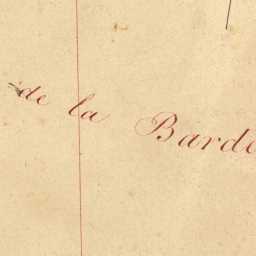 de la Barde